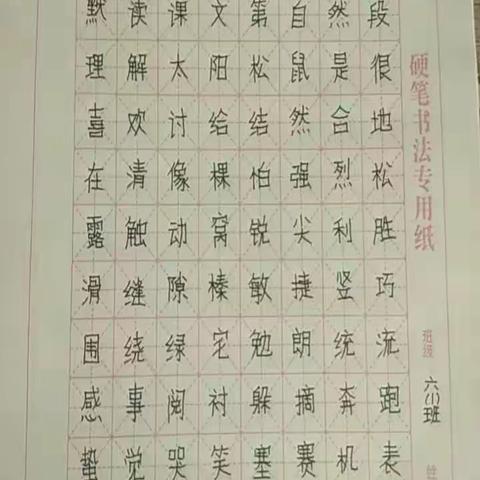 默读课文第自然段
理解太阳松鼠是很
喜欢讨给结然合地
在清像棵怕强烈松
露触动窝锐尖利胜
滑缝隙榛敏捷竖巧
围绕绿宅勉朗统流
感事阅衬躲摘奔跑
蛰觉哭笑塞赛机表
硬笔书法专用纸
班级
六(1)班
姓